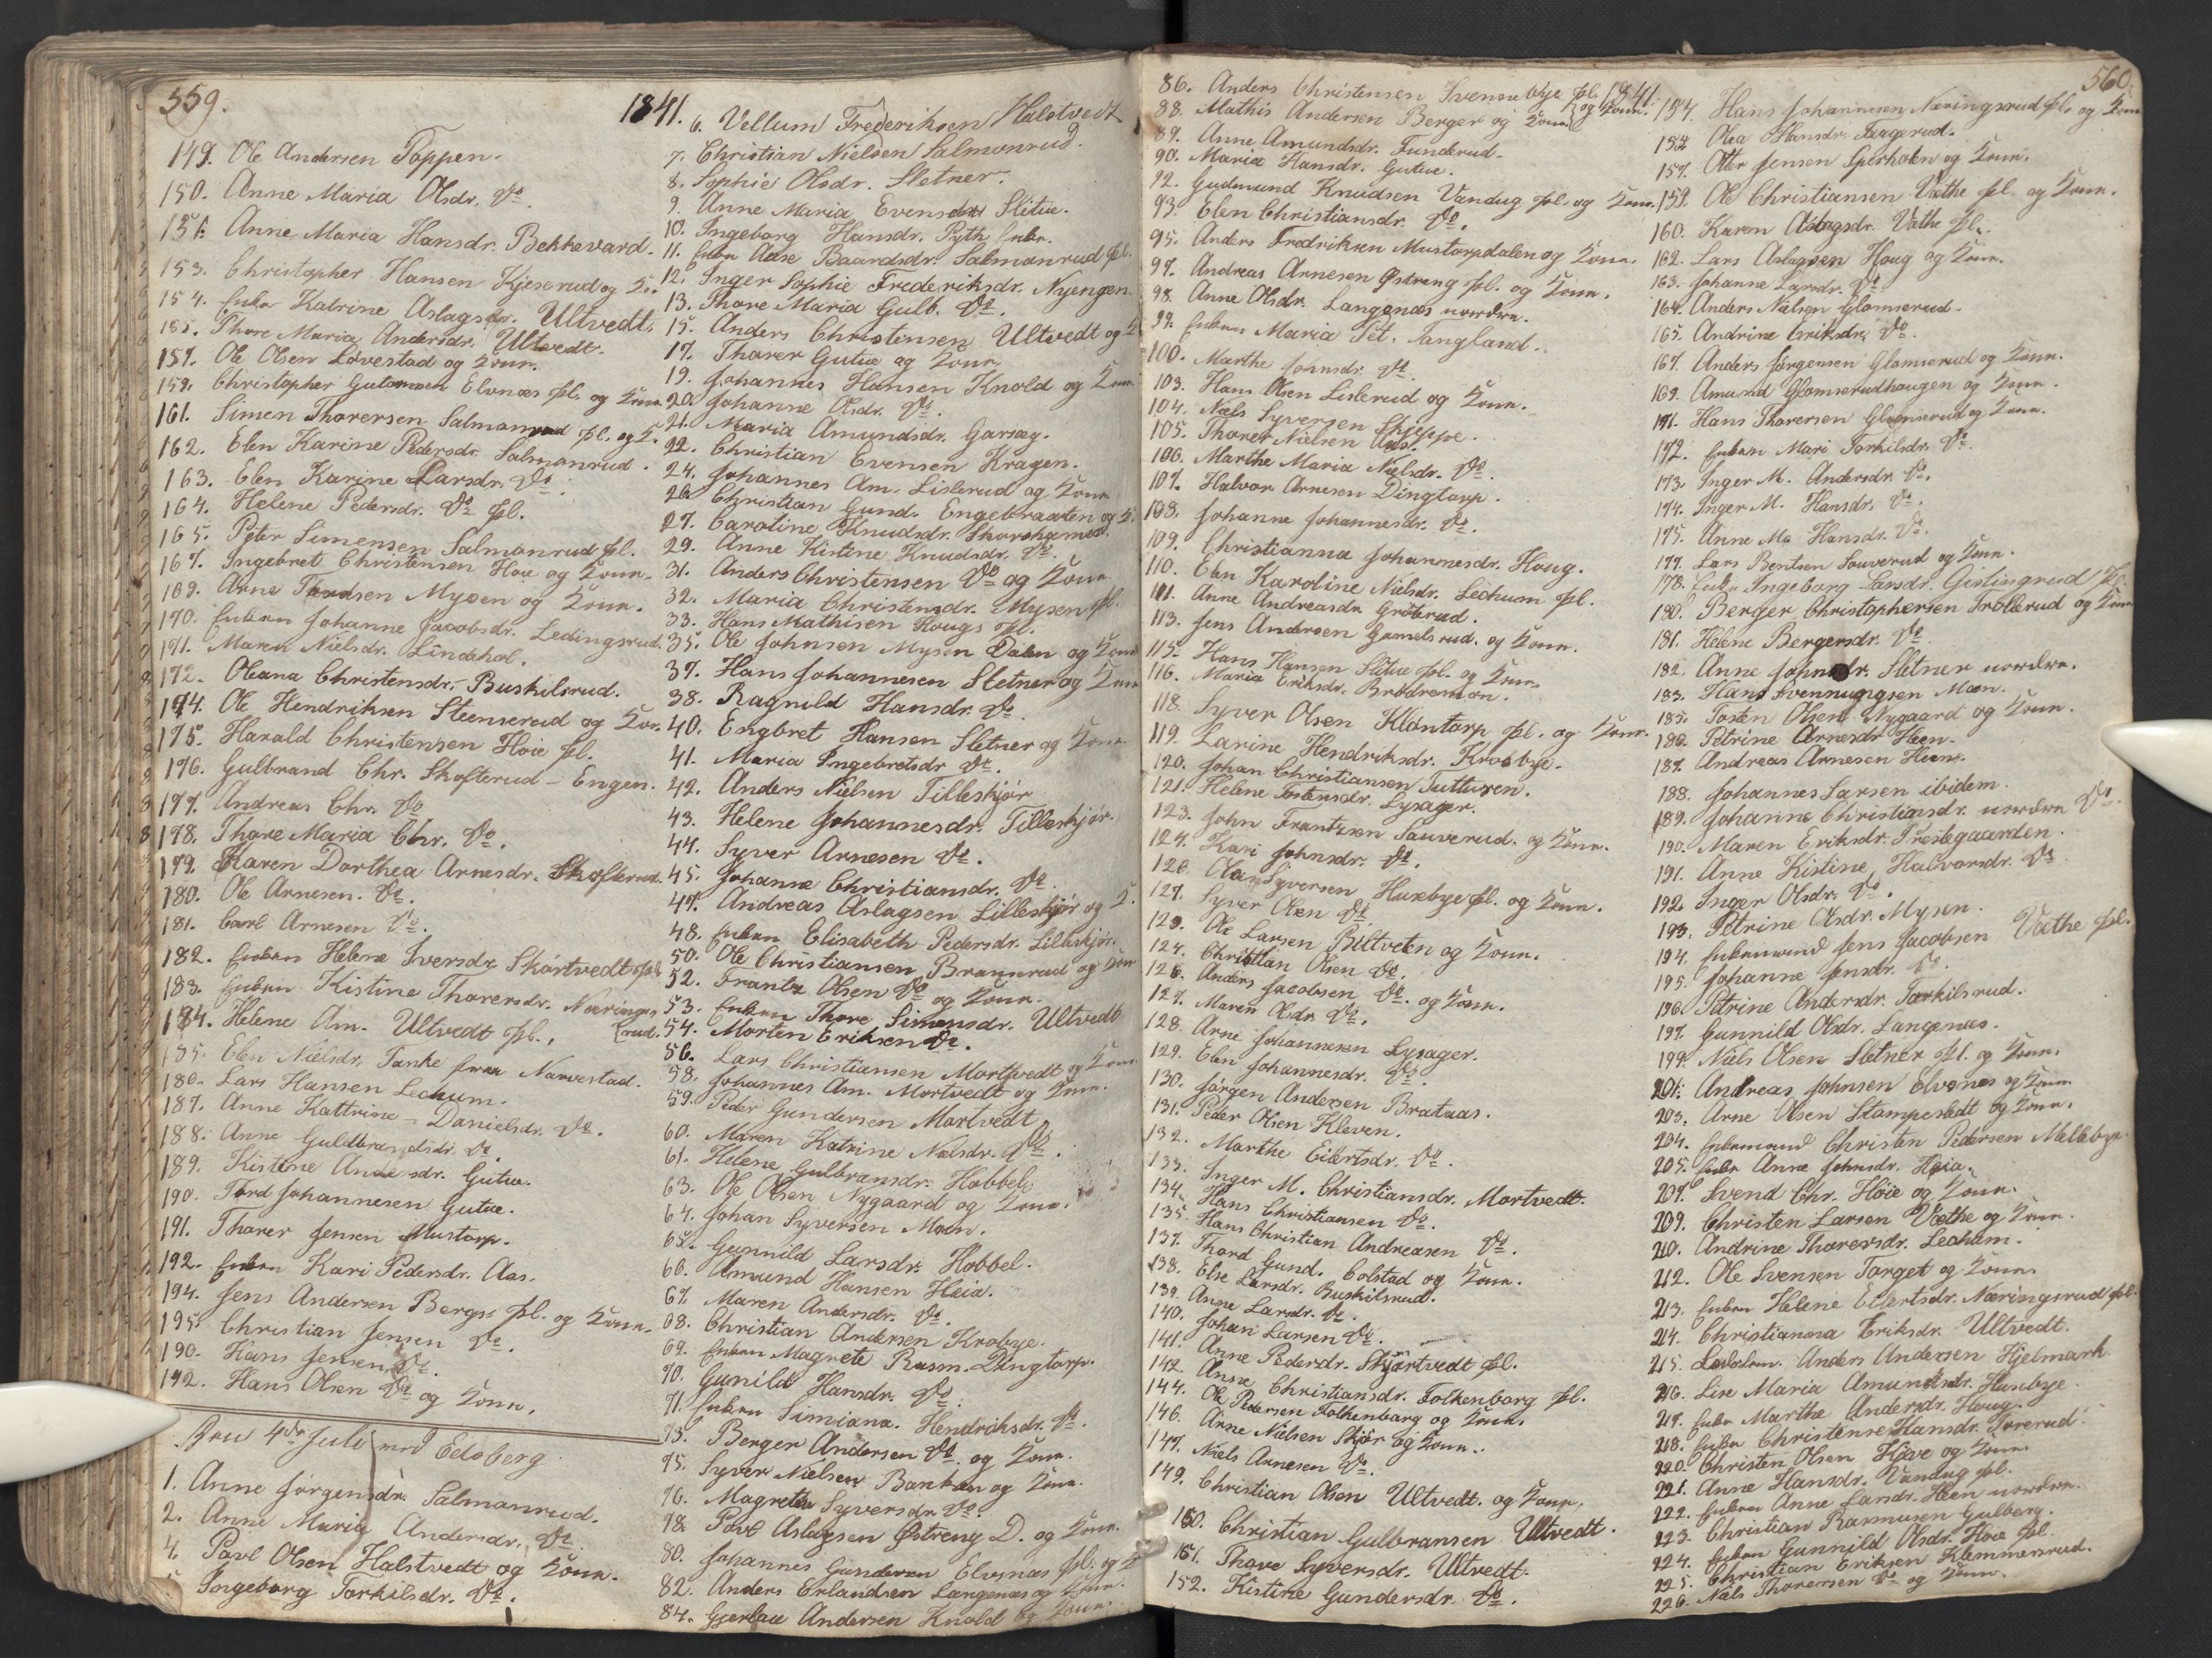 559.
1841.
149. Ole Andersen Toppen.
150. Anne Maria Olsdr. Do.
151. Anne Maria Hansdr. Bekkevard.
153. Christopher Hansen Kjeserud og K.
154. Enke Katrine Aslagsdr. Ultvedt.
155. Thore Maria Andersdr. Ultvedt.
157. Ole Olsen Løvestad og Kone.
159. Christopher Gulomsen Elvenæs pl. og Kone
161. Simen Thorersen Salmonrud pl. og K.
162. Elen Karine Pedersdr. Salmonrud.
163. Elen Karine Larsdr. Do.
164. Helene Pedersdr. Do pl.
165. Peter Simensen Salmonrud pl.
167. Ingebret Christensen Hoie og Kone.
169. Arne Tordsen Mysen og Kone.
170. Enken Johanne Jacobsdr. Ledingsrud.
171. Maren Nielsdr. Lindehol.
172. Oleana Christensdr. Buskilsrud.
174. Ole Hendriksen Steenserud og Kone.
175. Harald Christensen Høie pl.
176. Gulbrand Chr. Skofterud - Engen.
177. Andreas Chr. Do
178. Thore Maria Chr. Do.
179. Karen Dorthea Arnesdr. Skofterud.
180. Ole Arnesen. Do.
181. Carl Arnesen Do.
182. Enken Helene Iversdr. Skørtvedt pl.
183. Enken Kistine Thorersdr. Nærings
rud.
184. Helene Am. Ultvedt pl.
185. Elen Nielsdr. Tanke fra Narvestad.
186. Lars Hansen Lechum.
187. Anne Kattrine Danielsdr. Do.
188. Anne Guldbrandsdr. Do.
189. Kistine Andersdr. Gutue.
190. Tord Johannesen Gutue.
191. Thorer Jensen Mustorp.
192. Enken Kari Pedersdr. Aas.
194. Jens Andersen Bergs pl. og Kone.
195. Christian Jensen Do.
190. Hans Jensen Do.
192. Hans Olsen Do og Kone.
Den 4de Juli ved Edsberg
1. Anne Jørgensdr. Salmanrud.
2. Anne Maria Andersdr. Do
4. Povl Olsen Halstvedt og Kone.
Ingeborg Torkilsdr. Do.
6. Vellum Frederiksen Halstvedt
7. Christian Nielsen Salmonrud.
8. Sophie Olsdr. Sletner.
9. Anne Maria Evensdr. Slitue.
10. Ingeborg Hansdr. Pyth Enke.
11. Enke Aase Baardsdr. Salmonrud pl.
12. Inger Sophie Frederiksdr. Nyengen
13. Thore Maria Gulb. Do.
15. Anders Christensen Ultvedt og K
17. Thorer Gutue og Kone
19. Johannes Hansen Knold og Kone
20. Johanne Olsdr. Do.
21. Maria Amundsdr. Garseg.
22. Christian Evensen Kragen.
24. Johannes Am. Lislerud og Kone
26. Christian Gund. Engebraaten og K.
27. Caroline Knudsdr. Skorshamer.
29. Anne Kistine Knudsdr. Do.
31. Anders Christensen Do og Kone
32. Maria Christensdr. Mysen pl.
33. Hans Mathisen Hougs pl.
35. Ole Johnsen Mysen Dalen og Kone
37. Hans Johannesen Sletner og Kone
38. Ragnild Hansdr. Do.
40. Engbret Hansen Sletner og Kone.
41. Maria Ingebretsdr Do.
42. Anders Nielsen Tilleskjør
43. Helene Johannesdr. Tilleskjør.
44. Syver Arnesen Do.
45. Johanne Christiansdr. Do
47. Andreas Aslagsen Lilleskjør og K.
48. Enken Elisabeth Pedersdr. Lilleskjør.
50. Ole Christiansen Brannrud og Kone
52. Frantz Olsen Do og Kone.
53. Enken Thore Simensdr. Ultvedt
54. Morten Eriksen Do.
56. Lars Christiansen Mortvedt og Kone
58. Johannes Am. Mortvedt og Kone.
59. Peder Gundersen Mortvedt
60. Maren Katrine Nielsdr. Do.
61. Helene Gulbransdr. Hobbel
63. Ole Olsen Nygaard og Kone.
64. Johan Syversen Moen.
65. Gunnild Larsdr. Hobbel.
66. Amund Hansen Heia.
67. Maren Andersdr. Do.
68. Christian Andersen Krobye.
69. Enken Magrete Rasm. Dingtorp.
70. Gunild Hansdr. Do.
71. Enken Simiana. Hendriksdr. Do.
73. Berger Andersen Do. og Kone.
75. Syver Nielsen Banken og Kone.
76. Magrethe Syversdr. Do.
78. Povl Aslagsen Østreng D. og Kone.
80. Johannes Gundersen Elvenæs pl. og K
82. Anders Erlandsen Langenæs og Kone.
84. Gjerlau Andersen Knold og Kone.
560.
1841.
86. Anders Christensen Svennebye pl. og Kone.
88. Mathis Andersen Berger og Kone.
89. Anne Amundsdr. Funderud.
90. Maria Hansdr. Gutue.
92. Gudmund Knudsen Vandug pl. og Kone.
93. Elen Christiansdr. Do.
95. Anders Fredriksen Mustorpdalen og Kone.
97. Andreas Arnesen Østreng pl. og Kone.
98. Anne Olsdr. Langenæs nordre.
99. Enken Maria Pet. Tangland.
100. Marthe Johnsdr. Do.
103. Hans Olsen Lislerud og Kone.
104. Niels Syversen Skjeppe.
105. Thorer Nielsen Aas.
106. Marthe Maria Nielsdr. Do.
107. Halvor Arnesen Dingtorp.
108. Johanne Johannesdr. Do.
109. Christianna Johannesdr. Houg.
110. Elen Karoline Nielsdr. Lechum pl.
111. Anne Andreasdr. Grøterud.
113. Jens Andersen Gamelsrud. og Kone.
115. Hans Hansen Slitue pl. og Kone.
116. Maria Eriksdr. Brødremoen.
118. Syver Olsen Kløntorp pl. og Kone.
119. Larine Hendriksdr. Krobbye.
120. Johan Christiansen Tutturen.
121. Helene Tostensdr. Lysager.
123. John Frantzsen Sauverud. og Kone.
124. Kari Johnsdr. Do.
126. Ola Syversen Husebye pl. og Kone.
127. Syver Olsen Do
129. Ole Larsen Biltveten og Kone.
124. Christian Olsen Do.
126. Anders Jacobsen Do. og Kone.
127. Maren Olsdr. Do.
128. Arne Johannesen Lysager.
129. Elen Johannesdr. Do.
130. Jørgen Andersen Brataas.
131. Peder Olsen Kleven.
132. Marthe Eilertsdr. Do.
133. Inger M. Christiansdr. Mortvedt.
134. Hans Christiansen Do.
135. Hans Christian Andreasen Do.
137. Thord Gund. Colstad og Kone.
138. Else Larsdr. Buskilsrud.
139. Anne Larsdr. Do.
140. Johan Larsen Do.
141. Anne Pedersdr. Skjørtvedt pl.
142. Anne Christiansdr. Folkenborg pl.
144. Ole Pedersen Folkenborg og Kone.
146. Arne Nielsen Skjør og Kone.
147. Niels Arnesen Do.
149. Christian Olsen Ultvedt. og Kone.
150. Christian Gulbransen Ultvedt.
151. Thore Syversdr. Ultvedt.
152. Kistine Gundersdr. Do.
154. Hans Johannesen Næringsrud pl. og Kone
152. Olea Hansdr. Faagerud.
157. Otter Jensen Sperholen og Kone.
159. Ole Christiansen Væthe pl. og Kone.
160. Karen Aslagsdr. Væthe pl.
162. Lars Aslagsen Houg og Kone.
163. Johanne Larsdr. Do
164. Anders Nielsen Glomserud.
165. Andrine Eriksdr. Do.
167. Anders Jørgensen Glomserud og Kone.
169. Amund Glomserudhaugen og Kone.
171. Hans Thorersen Glomserud og Kone.
172. Enken Mari Torkilsdr. Do.
173. Inger M. Andersdr. Do.
174. Inger M. Hansdr. Do.
175. Anne Ma Hansdr. Do.
177. Lars Bentsen Souverud og Kone.
178. Enke Ingeborg Larsdr. Gislingrud pl.
180. Berger Christophersen Trollerud og Kone
181. Helene Bergersdr. Do
182. Anne Johnsdr. Sletner nordre.
183. Hans Svennungsen Moen.
185. Tosten Olsen Nygaard og Kone.
186. Petrine Arnesdr Heen.
187. Andreas Arnesen Heen.
188. Johannes Larsen ibidem.
189. Johanne Christiansdr. nordre Do.
190. Maren Eriksdr. Prestegaarden.
191. Anne Kistine Halvorsdr. Do
192. Inger Olsdr. Do.
193. Petrine Olsdr. Mysen.
194. Enkemand Jens Jacobsen Væthe pl.
195. Johanne Jensdr. Do.
196. Petrine Andersdr. Torkilsrud.
197. Gunnild Olsdr. Langenæs.
199. Niels Olsen Sletner pl. og Kone.
201. Andreas Johnsen Elvenes og Kone
203. Arne Olsen Stampestedt og Kone.
204. Enkemand Christen Pedersen Mellebye.
205. Enke Anne Johnsdr. Heia.
207. Svend Chr. Høie og Kone.
209. Christen Larsen Væthe og Kone.
210. Andrine Thorersdr. Lechum.
212. Ole Svensen Torget og Kone.
213. Enken Helene Eilertsdr. Næringsrud pl.
214. Christianna Eriksdr. Ultvedt.
215. Anders Andersen Hjelmark
216. Lise Maria Amundsdr. Husebye.
217. Enke Marthe Andersdr. Houg.
218. Enke Christense Hansdr. Torerud.
220. Christen Olsen Høve og Kone
221. Anne Hansdr. Vandug pl.
222. Enken Anne Larsdr. Heen nordre.
223. Christian Rasmusen Gulberg.
224. Enken Gunnild Olsdr. Høie pl.
225. Christian Eriksen Klemmersrud.
226. Niels Thorersen Do og Kone.